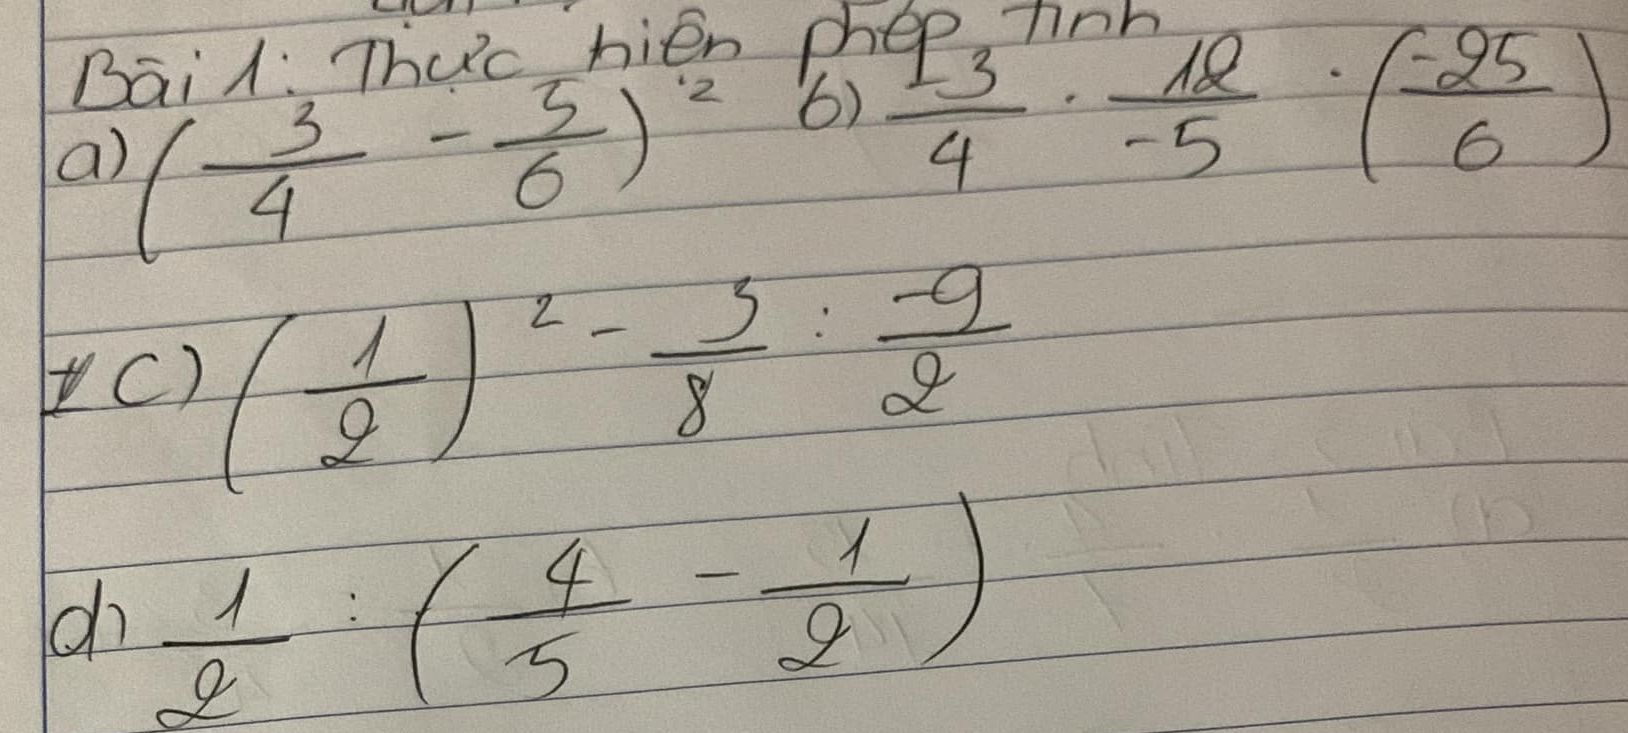 Bài 1: Thực hiện phép tính
a) (3/4 - 5/6)² b) -3/4 . 12/-5 . (-25/6)
c) (1/2)² - 3/8 : -9/2
d) 1/2 : (4/5 - 1/2)